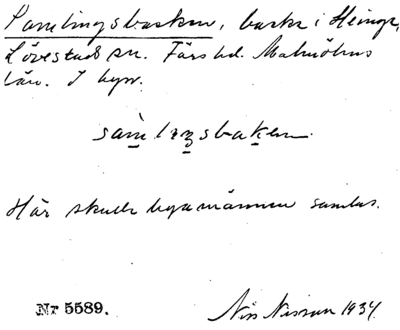 Samlingsbacken, backe i Heinge,
Lövestads sn. Färs hd. Malmöhus
län. I byn.
samlɪŋsbaken.
Här skulle byamännen samlas.
Nr 5589. Nils Nilsson 1934